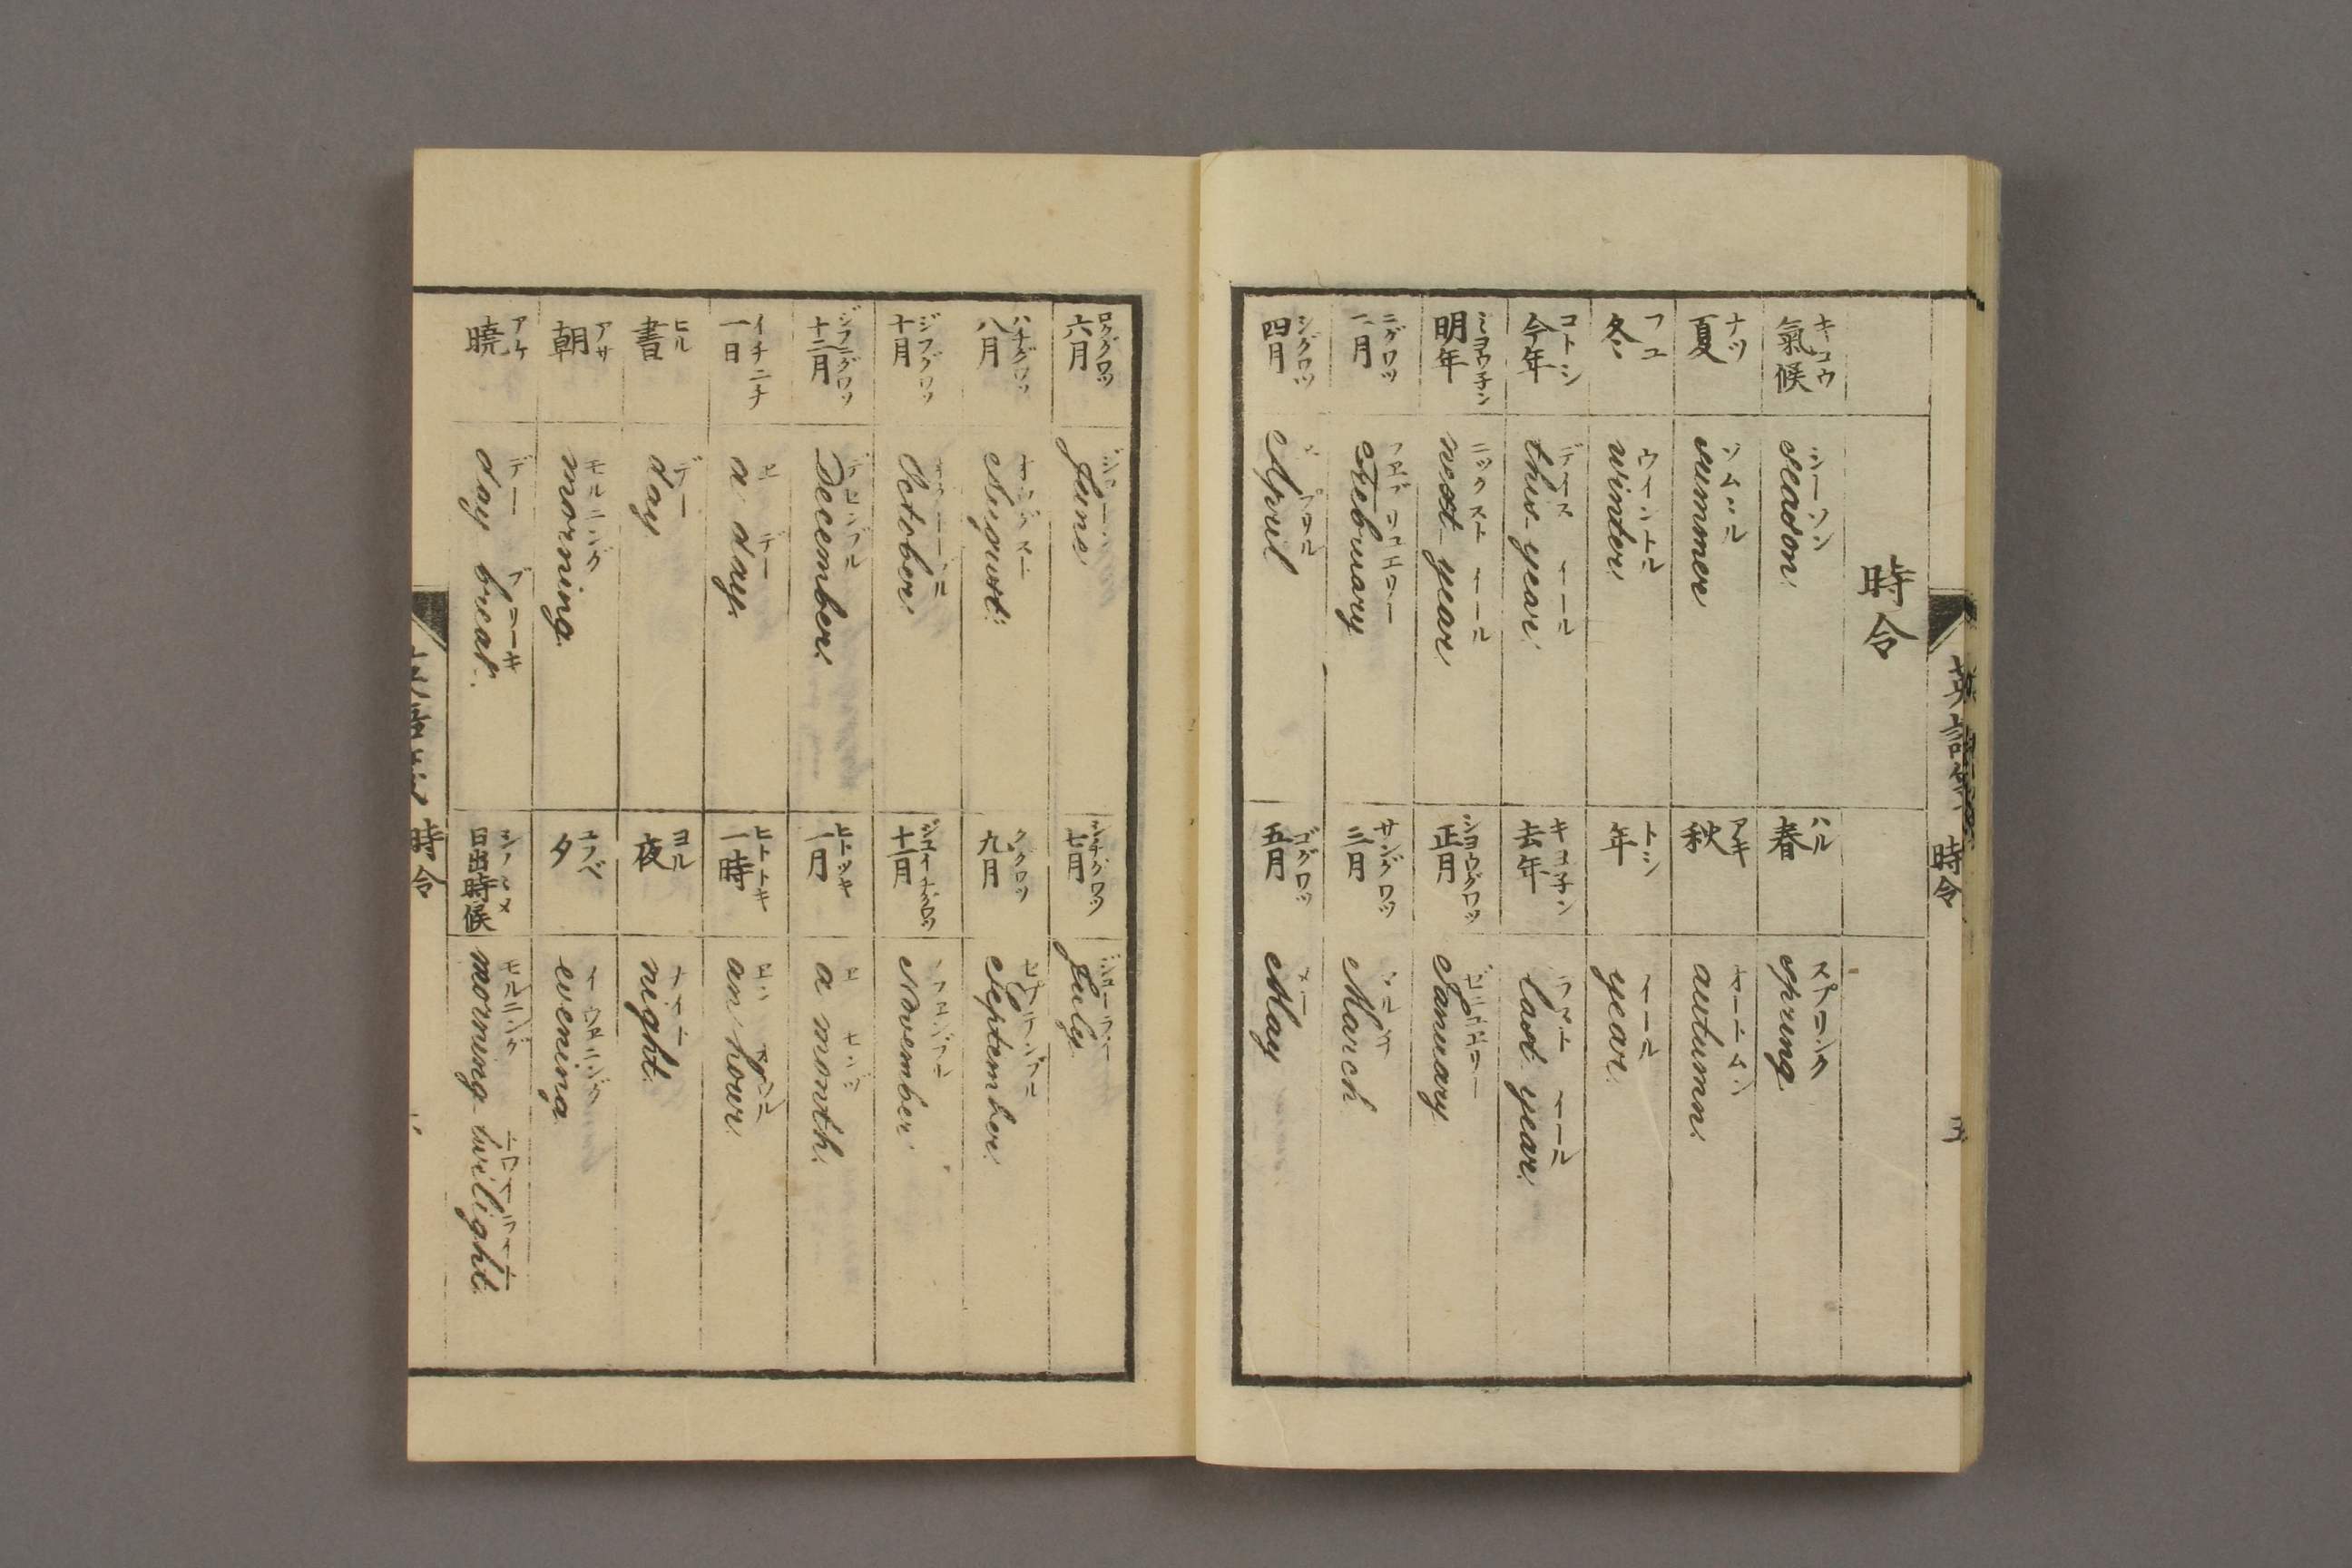 時令
キコウ
氣候
シーソン
season
ハル
春
スプリンク
spring
ナツ
夏
ソムミル
summer
アキ
秋
オートムン
autumn
フユ
冬
ウイントル
winter
トシ
年
イール
year
コトシ
今年
ディス イール
this year
キヨ子ン
去年
ラスト イール
last year
ミヨウ子ン
明年
ニックスト イール
next year
シヨウグワツ
正月
ゼニュエリー
January
ニグワツ
二月
フエブリュエリー
Februury
サングワツ
三月
マルチ
March
シグワツ
四月
プリル
April
ゴグワツ
五月
メー
May
時令
五
ロクグワツ
六月
ジューン
June
シチグワツ
七月
ジューライ
July
ハチグワツ
八月
オーグスト
August
ククワツ
九月
セプテンブル
September
ジフグワツ
十月
October
ジユイチグワツ
十一月
ノフエンブル
November
ジフニグワツ
十二月
デセンブル
December
ヒトツキ
一月
エ モンヅ
a month
イチニチ
一日
エ デー
a day
ヒトトキ
一時
エン
an hour
ヒル
晝
デー
day
ヨル
夜
ナイト
night
アサ
朝
モルニング
morning
ユフベ
夕
イウエニング
evening
アケ
暁
デー ブリーキ
day break
シノノメ
日出時候
モルニング トワイライト
morning twilight
時令